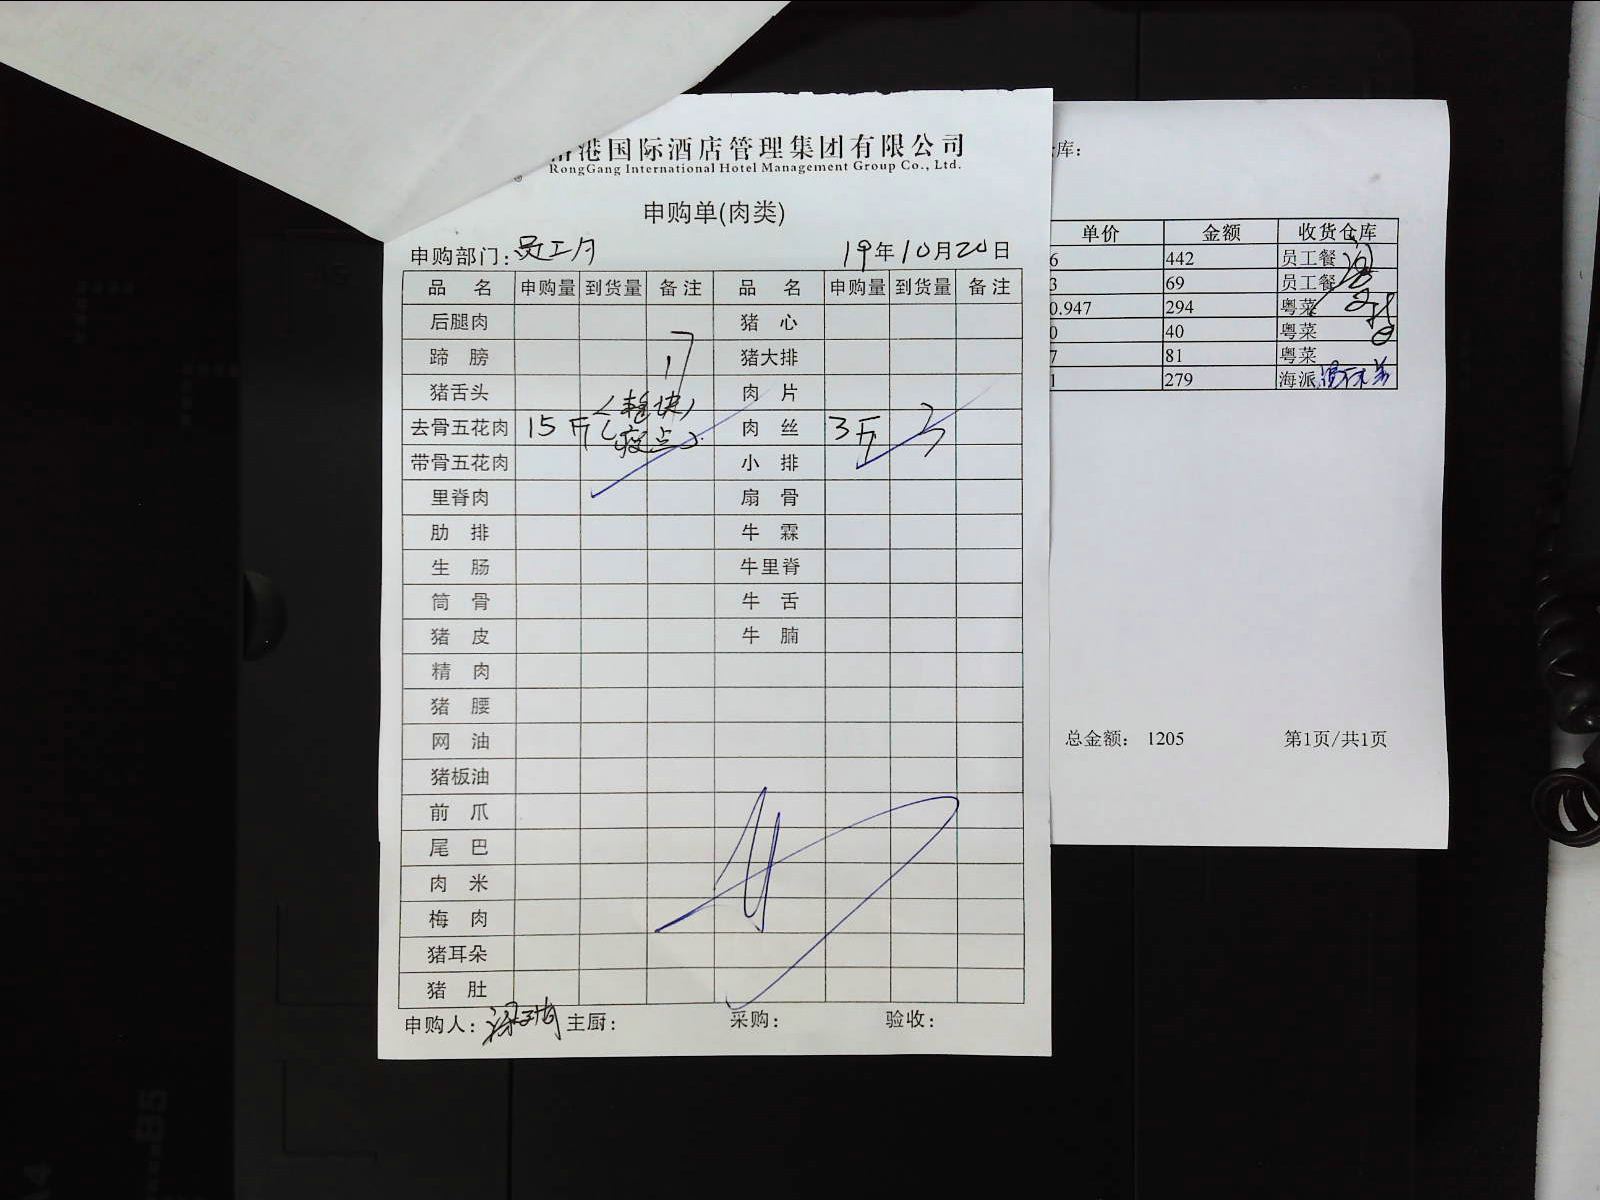 港国际酒店管理集团有限公司
RongGang International Hotel Management Group Co., Ltd.
申购单(肉类)
申购部门: 员工 19年10月20日
品 名 申购量 到货量 备注 品 名 申购量 到货量 备注
后腿肉 猪 心
蹄 膀 猪大排
猪舌头 肉 片
去骨五花肉 15斤 肉 丝 3斤 3
带骨五花肉 小 排
里脊肉 扇 骨
肋 排 牛 霖
生 肠 牛里脊
筒 骨 牛 舌
猪 皮 牛 腩
精 肉
猪 腰
网 油
猪板油
前 爪
尾 巴
肉 米
梅 肉
猪耳朵
猪 肚
申购人: 主厨: 采购: 验收:
库:
单价 金额 收货仓库
6 442 员工餐
3 69 员工餐
0.947 294 粤菜
0 40 粤菜
7 81 粤菜
1 279 海派
总金额: 1205 第1页/共1页